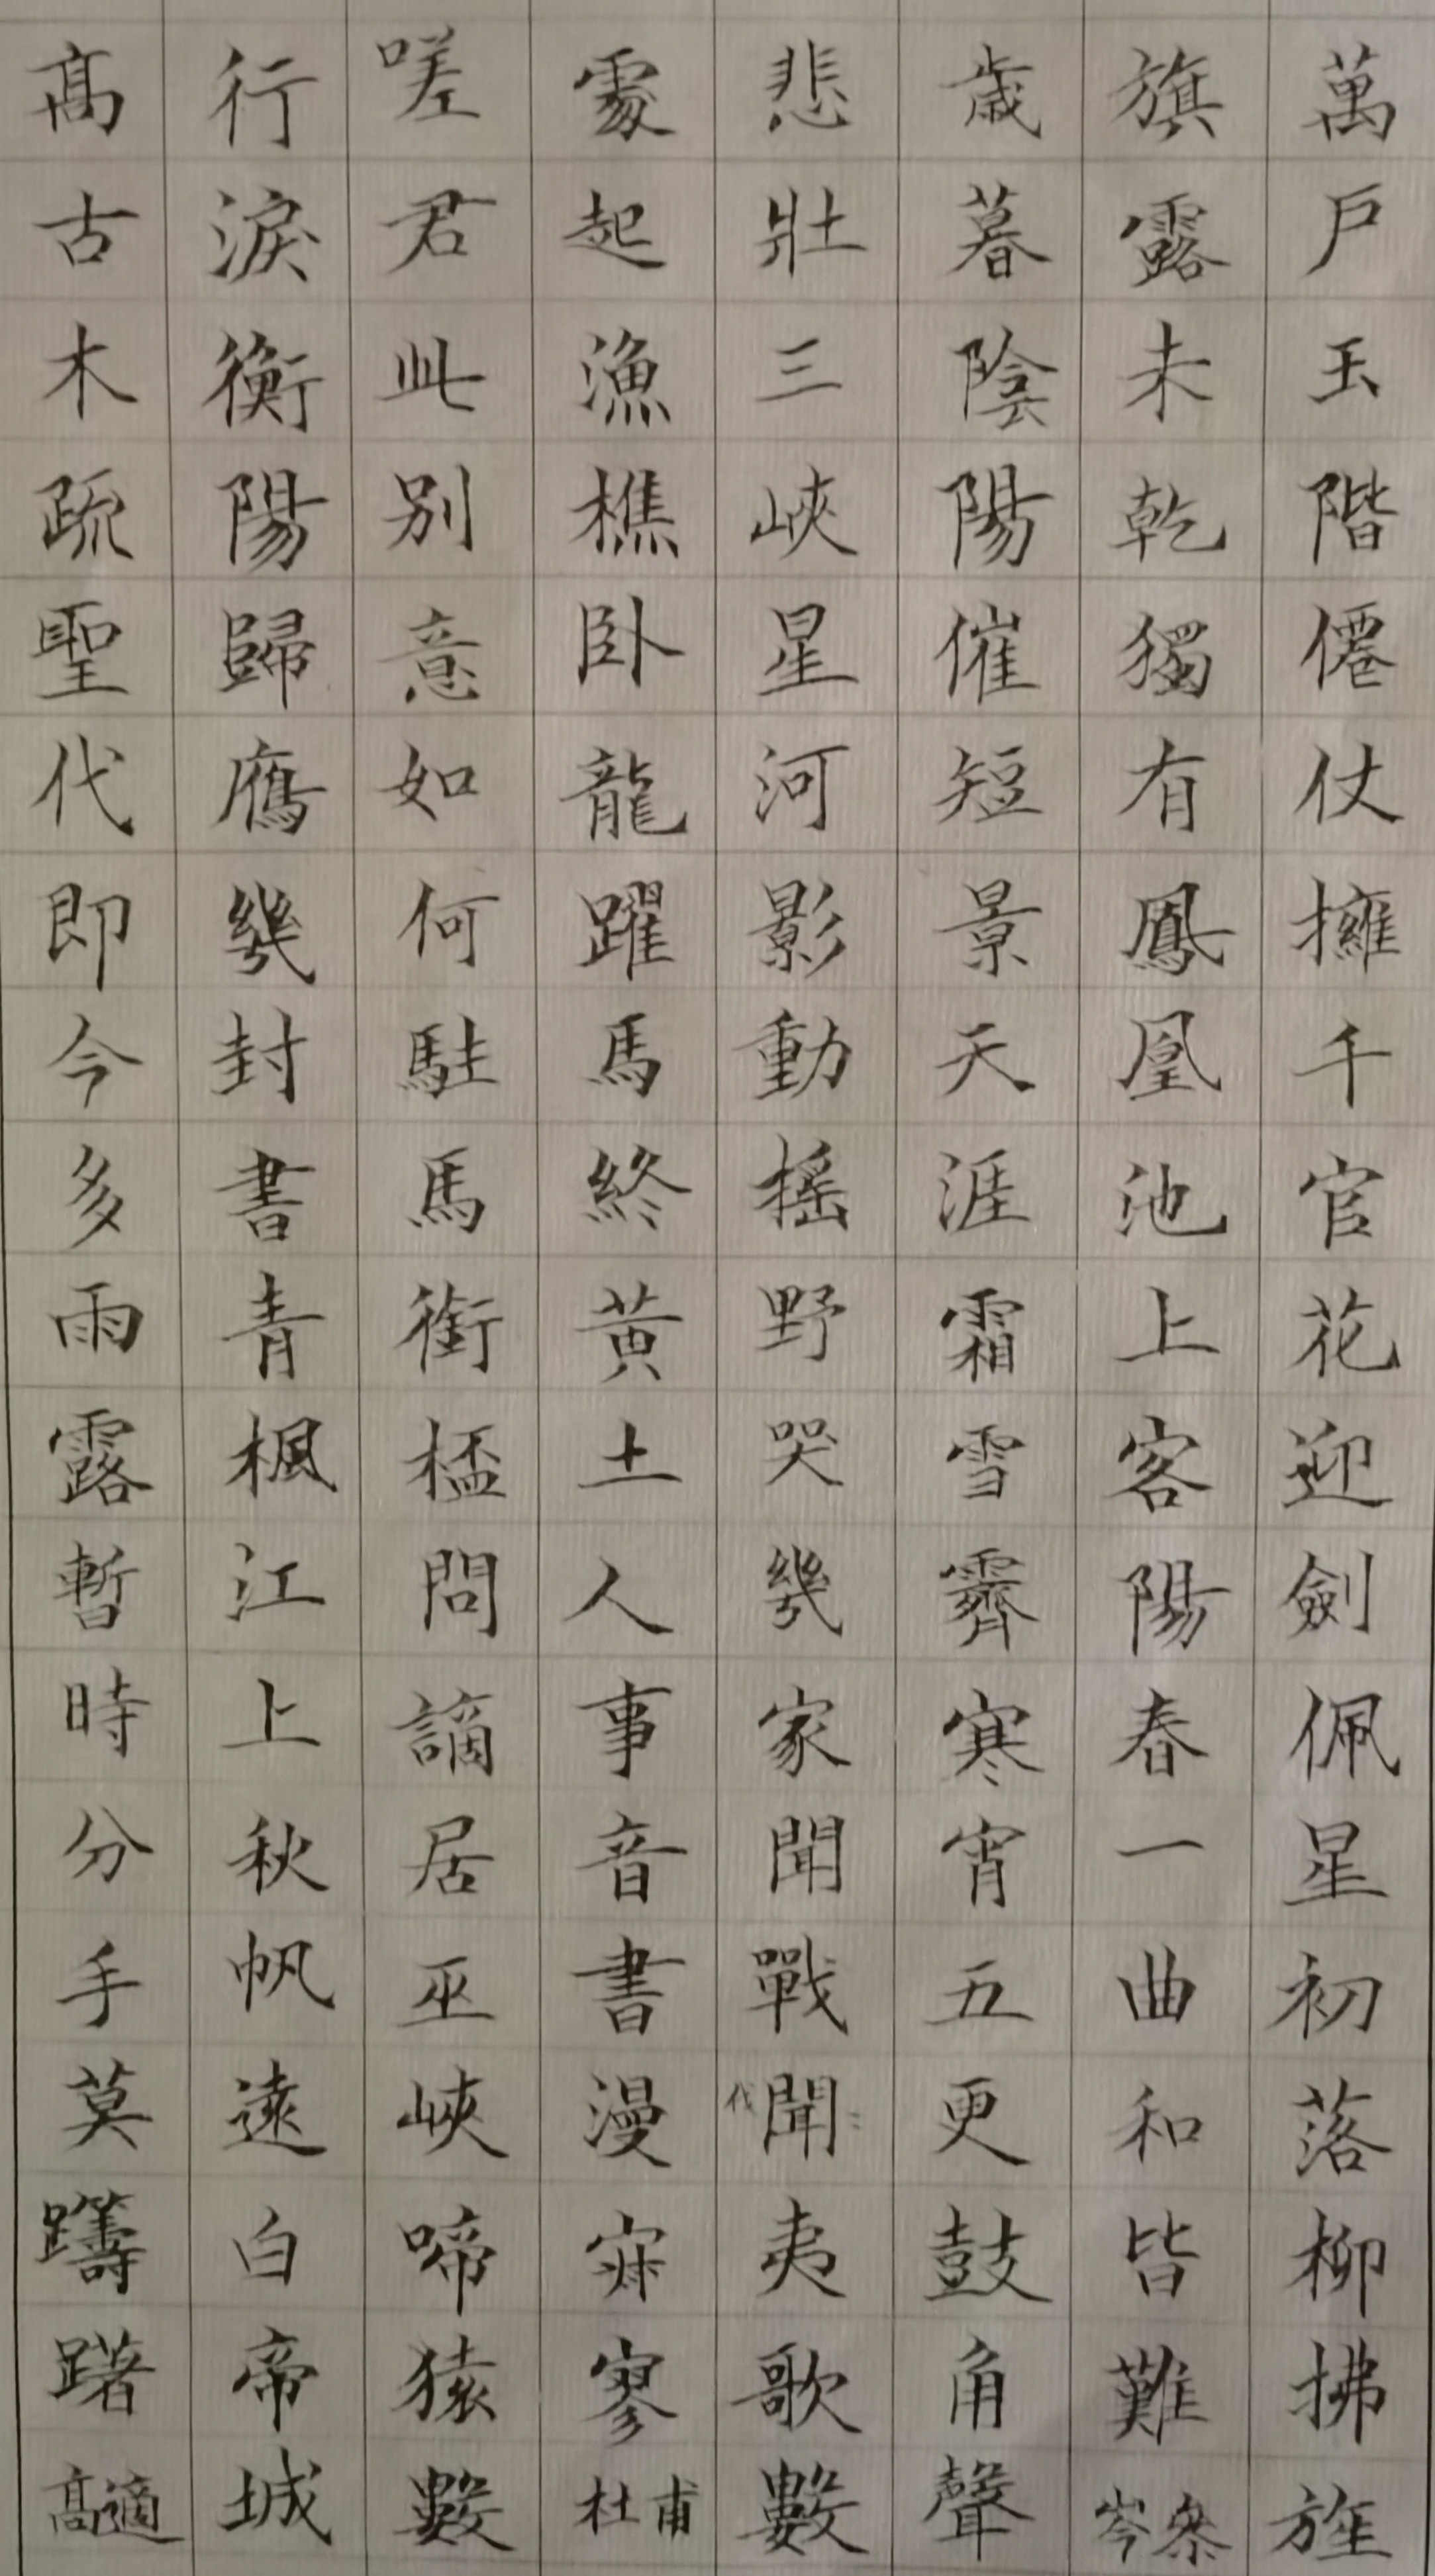 萬戶玉階僊仗擁千官花迎劍佩星初落柳拂旌
旗露未乾獨有鳳凰池上客陽春一曲和皆難岑參
歲暮陰陽催短景天涯霜雪霽寒宵五更鼓角聲
悲壯三峽星河影動搖野哭幾家聞戰聞伐夷歌數
處起漁樵臥龍躍馬終黃土人事音書漫寂寥杜甫
嗟君此別意如何駐馬銜桮問謫居巫峽啼猿數
行淚衡陽歸鴈幾封書青楓江上秋帆遠白帝城
高古木疏聖代即今多雨露暫時分手莫躊躇高適